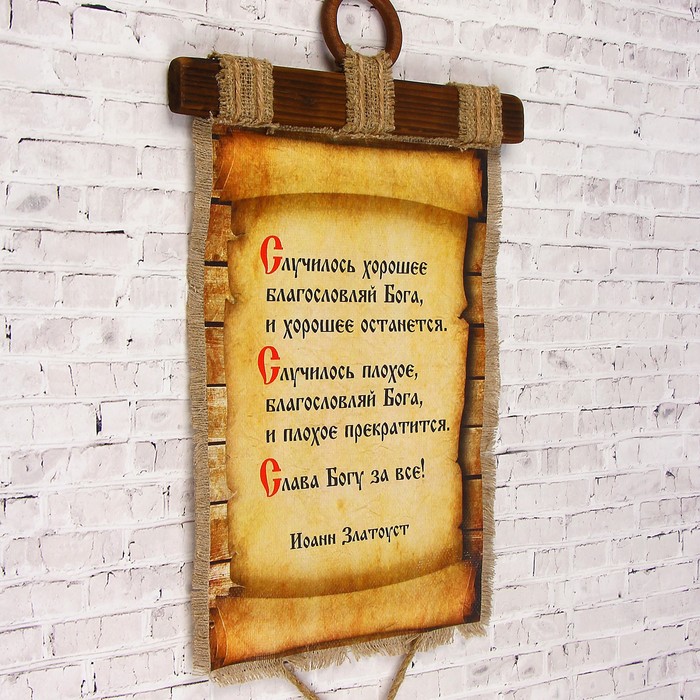 Случилось хорошее
благословляй Бога,
и хорошее останется.
Случилось плохое,
благословляй Бога,
и плохое прекратится.
Слава Богу за все!
Иоанн Златоуст